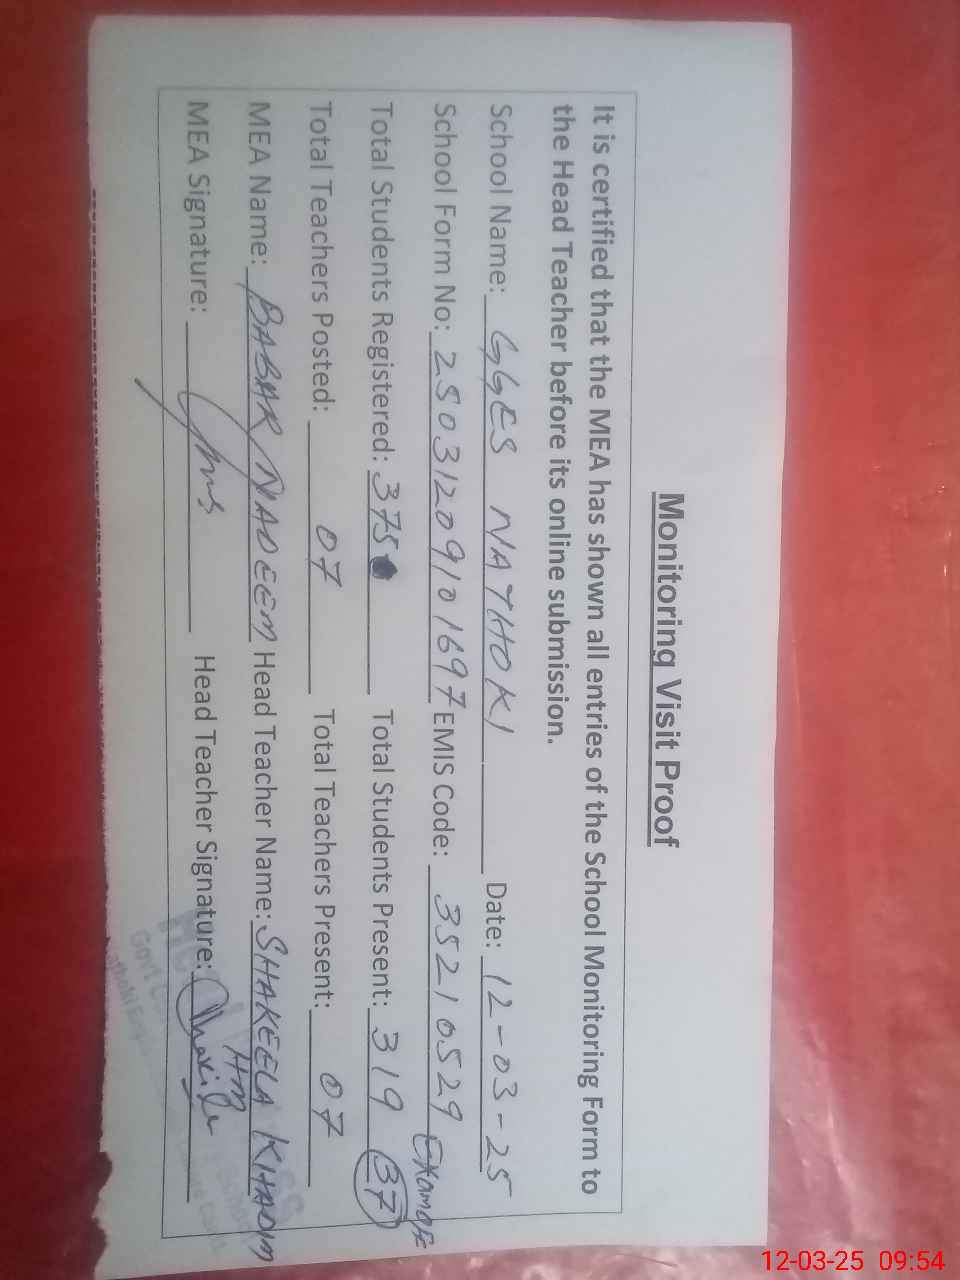 Monitoring Visit Proof
It is certified that the MEA has shown all entries of the School Monitoring Form to
the Head Teacher before its online submission.
School Name: GGES NATHOKI Date: 12-03-25
School Form No: 25031209101697 EMIS Code: 35210529
Total Students Registered: 375 Total Students Present: 319 37
Total Teachers Posted: 07 Total Teachers Present: 07
MEA Name: BABAR NADEEM Head Teacher Name: SHAKEELA KHADIM
HM
MEA Signature: Head Teacher Signature:
Govt
12-03-25 09:54